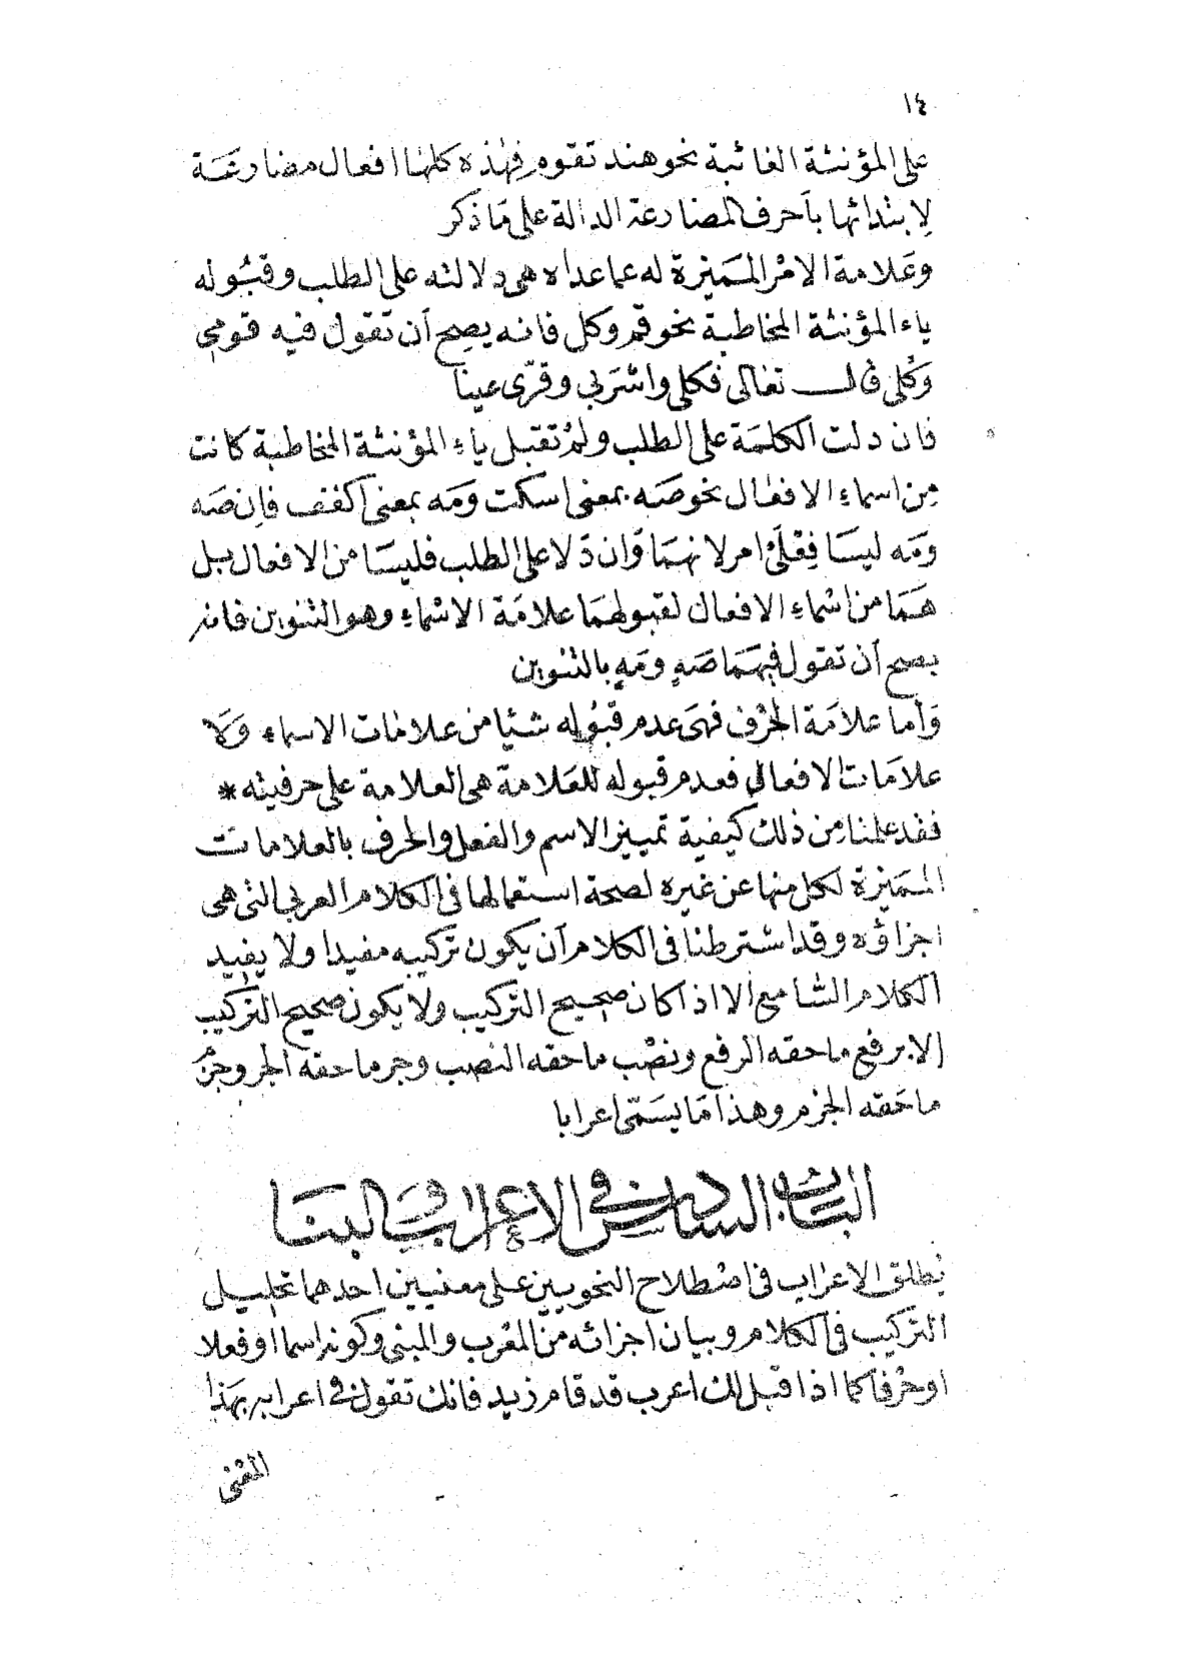 ١٤
على المؤنثة الغائبة نحو هند تقوم فهٰذه كلها افعال مضارعة
لابتدائها بأحرف المضارعة الدالة على ما ذكر
وعلامة الامر المميزة له عما عداه هى دلالته على الطلب وقبوله
ياء المؤنثة المخاطبة نحو قم وكل فانه يصح أن تقول فيه قومى
وكلى قال تعالى فكلى واشربى وقرّى عينا
فان دلت الكلمة على الطلب ولم تقبل ياء المؤنثة المخاطبة كانت
من اسماء الافعال نحو صه بمعنى اسكت ومه بمعنى اكفف فان صه
ومه ليسا فعلى امر لانهما وان دلا على الطلب فليسا من الافعال بل
هما من اسماء الافعال لقبولهما علامة الاسماء وهو التنوين فانه
يصح أن تقول فيهما صهٍ ومهٍ بالتنوين
وأما علامة الحرف فهى عدم قبوله شيئا من علامات الاسماء ولا
علامات الافعال فعدم قبوله للعلامة هى العلامة على حرفيته *
فقد علمنا من ذلك كيفية تمييز الاسم والفعل والحرف بالعلامات
المميزة لكل منها عن غيره لصحة استعمالها فى الكلام العربى التى هى
اجزاؤه وقد اشترطنا فى الكلام أن يكون تركيبه مفيدا ولا يفيد
الكلام السامع الا اذا كان صحيح التركيب ولا يكون صحيح التركيب
الا برفع ما حقه الرفع ونصب ما حقه النصب وجر ما حقه الجر وجزم
ما حقه الجزم وهذا ما يسمّى اعرابا
الباب السادس فى الاعراب والبنا
يطلق الاعراب فى اصطلاح النحويين على معنيين احدهما تحليل
التركيب فى الكلام وبيان اجزائه من المعرب والمبنى وكونه اسما او فعلا
او حرفا كما اذا قيل لك اعرب قد قام زيد فانك تقول فى اعرابه بهذا
المعنى